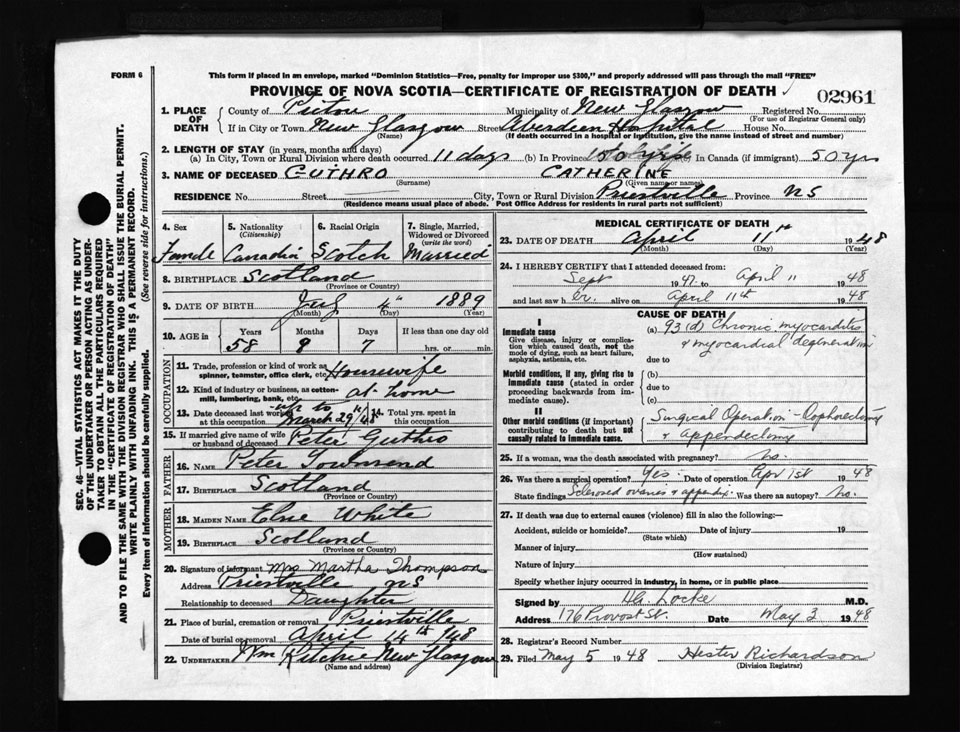 FORM 6
This form if placed in an envelope, marked "Dominion Statistics—Free, penalty for improper use $300," and properly addressed will pass through the mail "FREE"
PROVINCE OF NOVA SCOTIA—CERTIFICATE OF REGISTRATION OF DEATH
02961
1. PLACE OF DEATH
County of Pictou Municipality of New Glasgow Registered No.
(For use of Registrar General only)
If in City or Town New Glasgow Street Aberdeen Hospital House No.
(Name) (If death occurred in a hospital or institution, give the name instead of street and number)
2. LENGTH OF STAY (in years, months and days)
(a) In City, Town or Rural Division where death occurred 11 days (b) In Province 50 yrs In Canada (if immigrant) 50 yrs
3. NAME OF DECEASED GUTHRO CATHERINE
(Surname) (Given name or names)
RESIDENCE No. Street City, Town or Rural Division Priestville Province NS
(Residence means usual place of abode. Post Office Address for residents in rural parts not sufficient)
SEC. 46—VITAL STATISTICS ACT MAKES IT THE DUTY
OF THE UNDERTAKER OR PERSON ACTING AS UNDER-
TAKER TO OBTAIN ALL THE PARTICULARS REQUIRED
IN THE "CERTIFICATE OF REGISTRATION OF DEATH"
AND TO FILE THE SAME WITH THE DIVISION REGISTRAR WHO SHALL ISSUE THE BURIAL PERMIT.
WRITE PLAINLY WITH UNFADING INK. THIS IS A PERMANENT RECORD.
Every item of information should be carefully supplied. (See reverse side for instructions.)
4. Sex 5. Nationality (Citizenship) 6. Racial Origin 7. Single, Married, Widowed or Divorced (write the word)
Female Canadian Scotch Married
8. BIRTHPLACE Scotland
(Province or Country)
9. DATE OF BIRTH July 4th 1889
(Month) (Day) (Year)
10. AGE in Years Months Days If less than one day old
58 9 7 hrs. or min.
OCCUPATION
11. Trade, profession or kind of work as spinner, teamster, office clerk, etc. Housewife
12. Kind of industry or business, as cotton-mill, lumbering, bank, etc. at home
13. Date deceased last worked at this occupation up to March 29th/48 14. Total yrs. spent in this occupation
15. If married give name of wife or husband of deceased Peter Guthro
FATHER
16. NAME Peter Townsend
17. BIRTHPLACE Scotland
(Province or Country)
MOTHER
18. MAIDEN NAME Elsie White
19. BIRTHPLACE Scotland
(Province or Country)
20. Signature of informant Mrs Martha Thompson
Address Priestville NS
Relationship to deceased Daughter
21. Place of burial, cremation or removal Priestville
Date of burial or removal April 14th/48
22. UNDERTAKER Wm Ritchie New Glasgow
(Name and address)
MEDICAL CERTIFICATE OF DEATH
23. DATE OF DEATH April 11th 1948
(Month) (Day) (Year)
24. I HEREBY CERTIFY that I attended deceased from:
Sept 1947 to April 11 1948
and last saw her alive on April 11th 1948
CAUSE OF DEATH
I
Immediate cause
Give disease, injury or complication which caused death, not the mode of dying, such as heart failure, asphyxia, asthenia, etc.
(a) 93(d) Chronic myocarditis
& myocardial degeneration
due to
Morbid conditions, if any, giving rise to immediate cause (stated in order proceeding backwards from immediate cause).
(b)
due to
(c)
II
Other morbid conditions (if important) contributing to death but not causally related to immediate cause.
Surgical Operation - Oophorectomy
& appendectomy
25. If a woman, was the death associated with pregnancy? No.
26. Was there a surgical operation? Yes. Date of operation Apr 1st 1948
State findings Sclerosed ovaries & appendix. Was there an autopsy? No.
27. If death was due to external causes (violence) fill in also the following:—
Accident, suicide or homicide? Date of injury 19
(State which)
Manner of injury
(How sustained)
Nature of injury
Specify whether injury occurred in industry, in home, or in public place
Signed by Locke M.D.
Address 176 Provost St. Date May 3 1948
28. Registrar's Record Number
29. Filed May 5 1948 Hester Richardson
(Division Registrar)